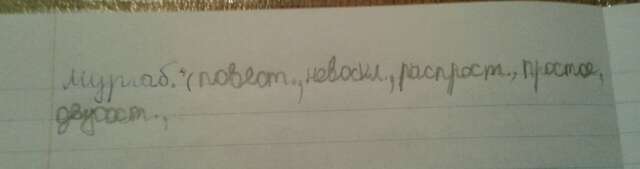 Мургаб." (повест., невоскл., распрост., простое,
двусост.,